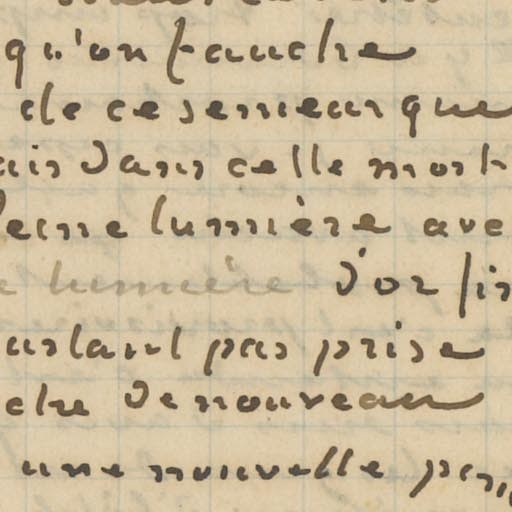 qu'on fauche
de ce semeur que
ais dans celle mort
leine lumière ave
e lumière d'or fin
urtant pas prise
che de nouveau
une nouvelle pers